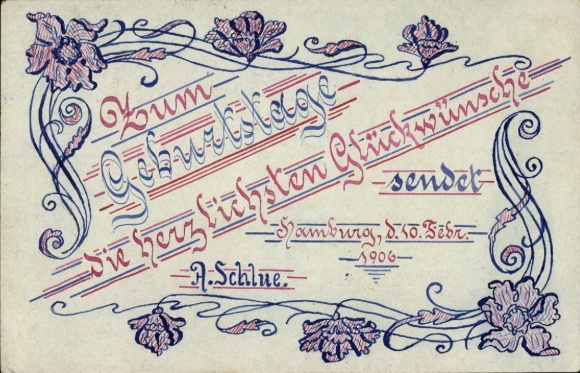 Zum
Geburtstage
die herzlichsten Glückwünsche
sendet
Hamburg, d. 10. Febr.
1906
A. Schlue.